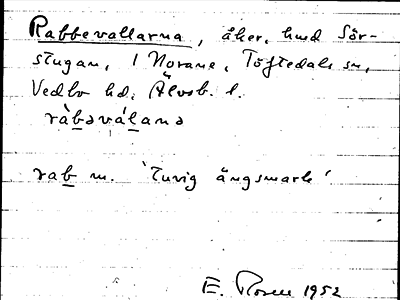 Rabbevallarna, åker, hmd Sör-
stugan, 1 Norane, Töftedals sn,
Vedbo hd, Älvsb. l.
ràbəváḷana
rab m. 'tuvig ängsmark'
E. Rosell 1952